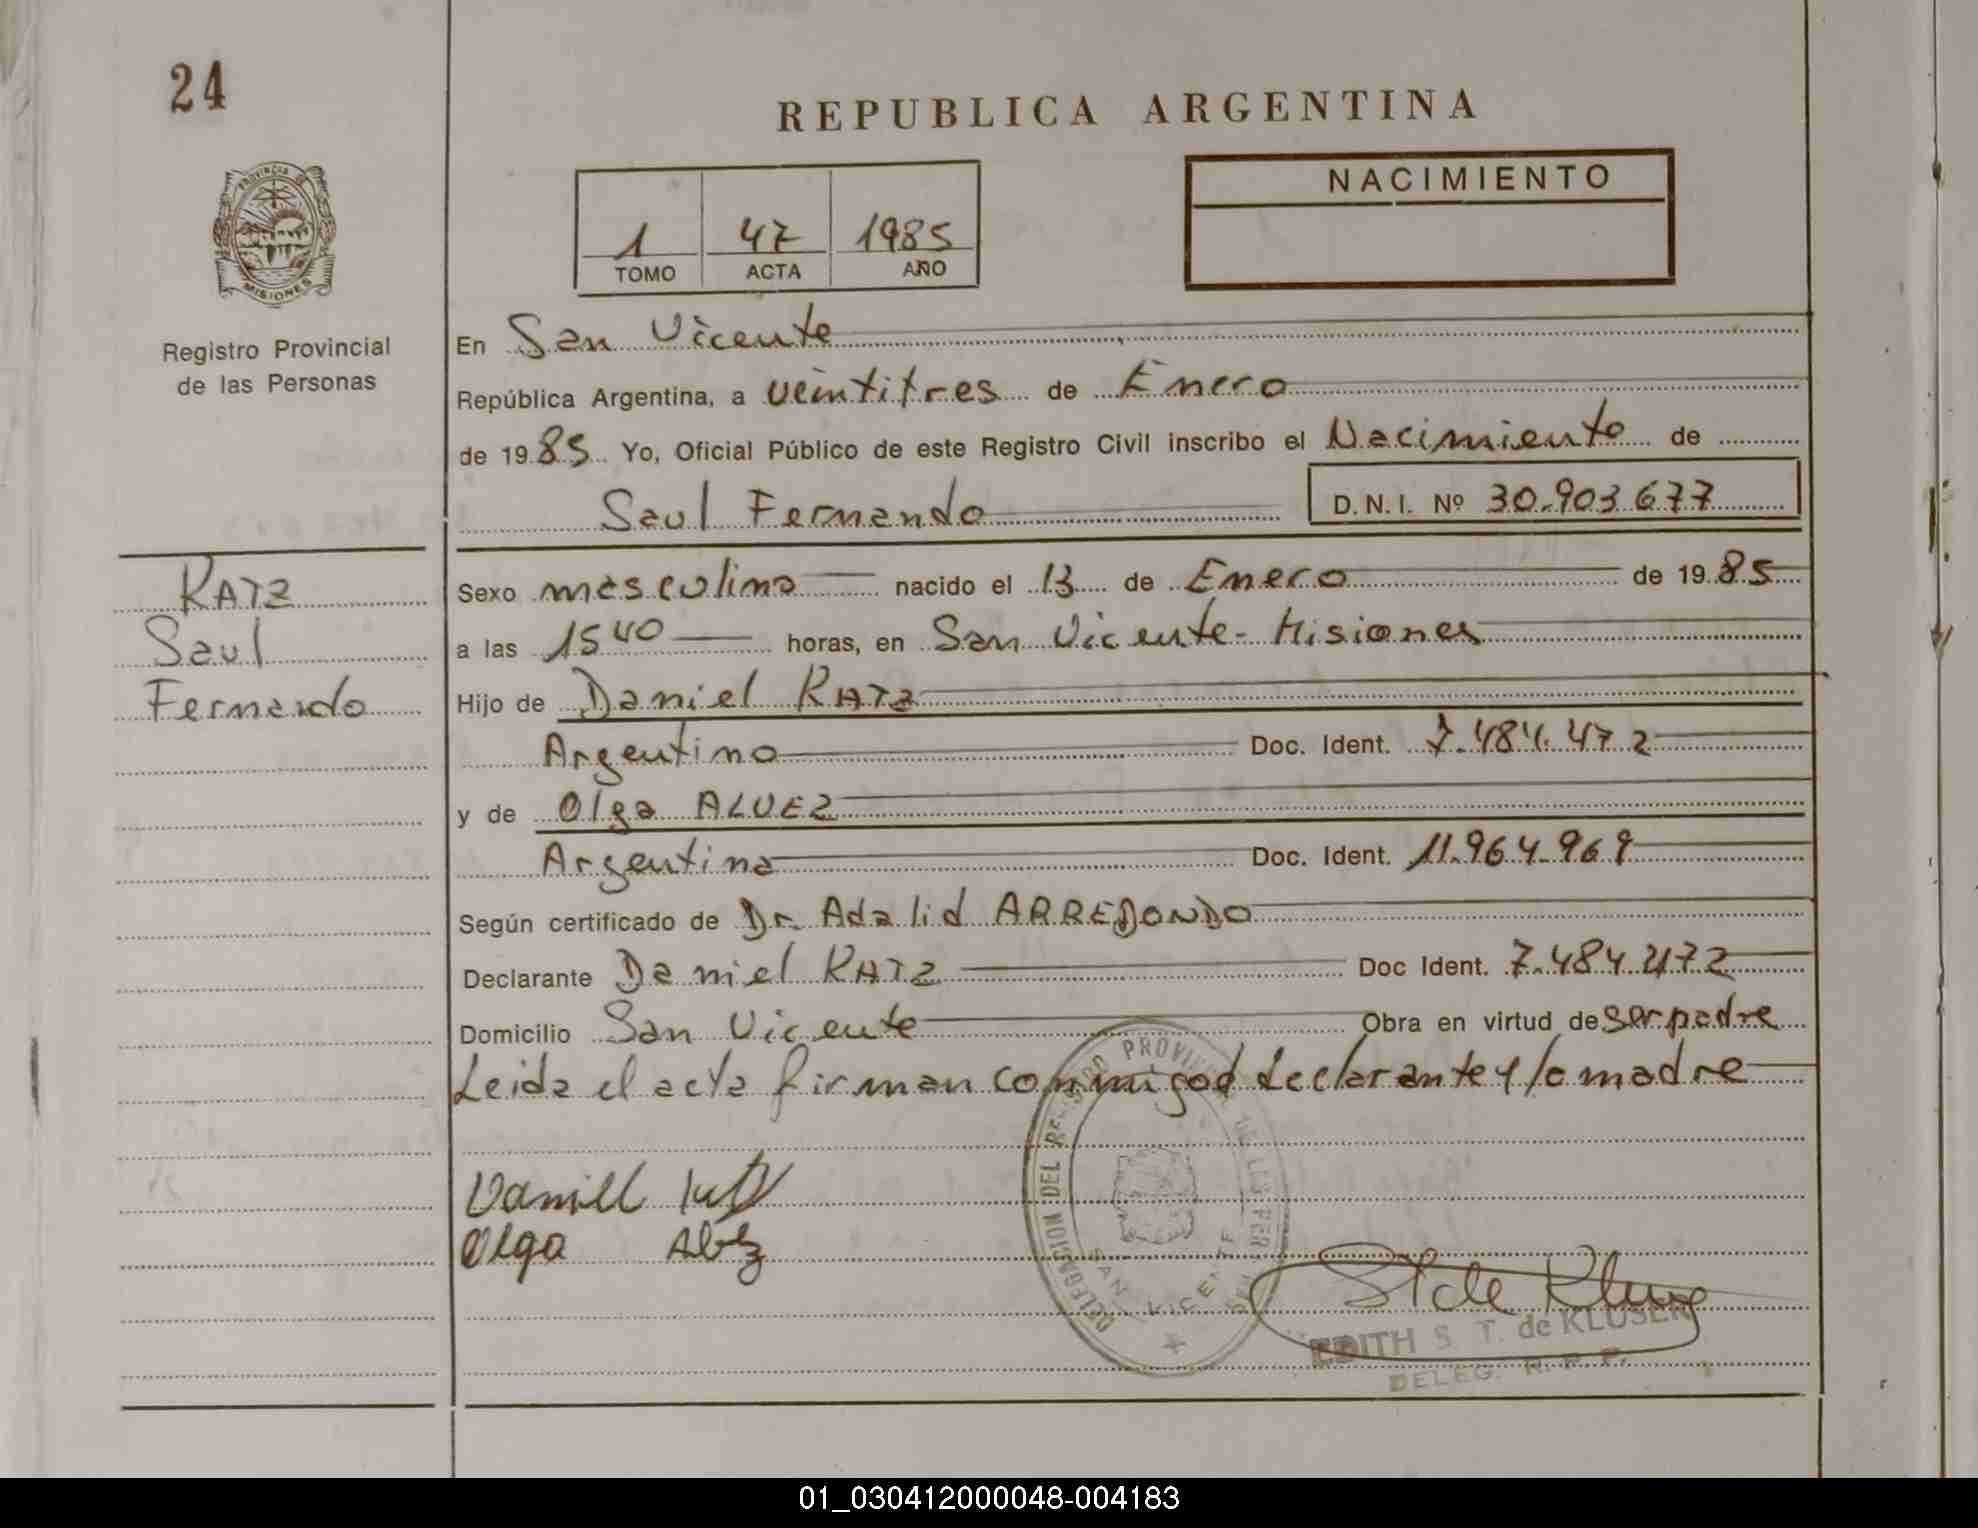 24
REPUBLICA ARGENTINA
PROVINCIA DE
MISIONES
Registro Provincial
de las Personas
1 47 1985
TOMO ACTA AÑO
NACIMIENTO
En San Vicente
República Argentina, a veintitres de Enero
de 1985 Yo, Oficial Público de este Registro Civil inscribo el Nacimiento de
Saul Fernando D.N.I. Nº 30.903.677
KATZ
Saul
Fernando
Sexo masculino nacido el 13 de Enero de 1985
a las 15 40 horas, en San Vicente - Misiones
Hijo de Daniel KATZ
Argentino Doc. Ident. 7.484.472
y de Olga ALVEZ
Argentina Doc. Ident. 11.964.969
Según certificado de Dr. Adalid ARREDONDO
Declarante Daniel KATZ Doc Ident. 7.484.472
Domicilio San Vicente Obra en virtud de ser padre
Leida el acta firman conmigo el declarante y la madre
DELEGACION DEL REGISTRO PROVINCIAL DE LAS PERSONAS
SAN VICENTE
Olga Alvez
EDITH S. T. de KLUSER
DELEG. R. P. P.
01_030412000048-004183